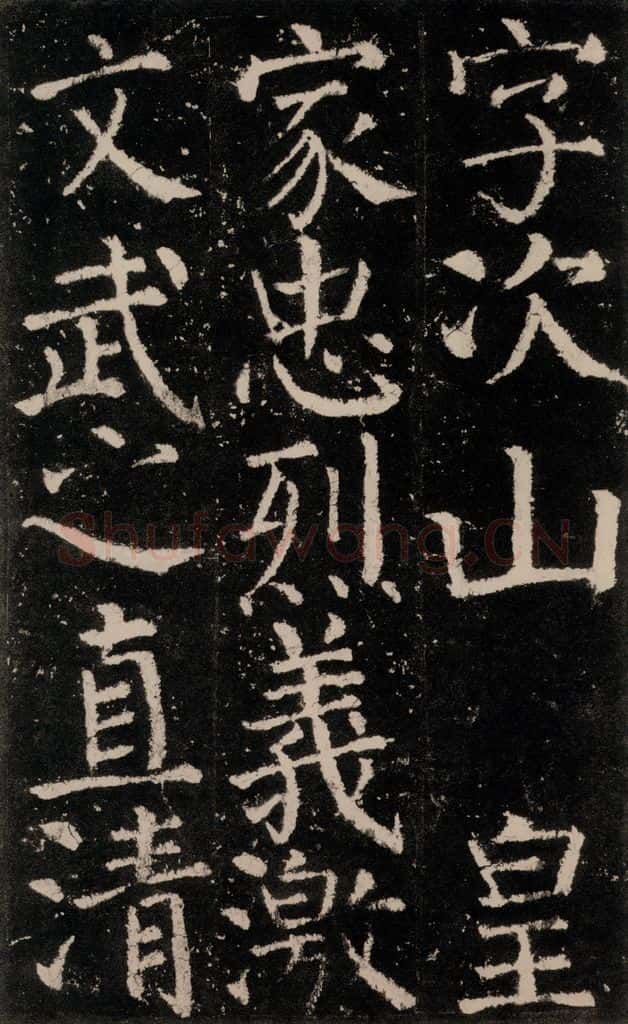 字次山皇
家忠烈義激
文武之直清
Shufawang.CN